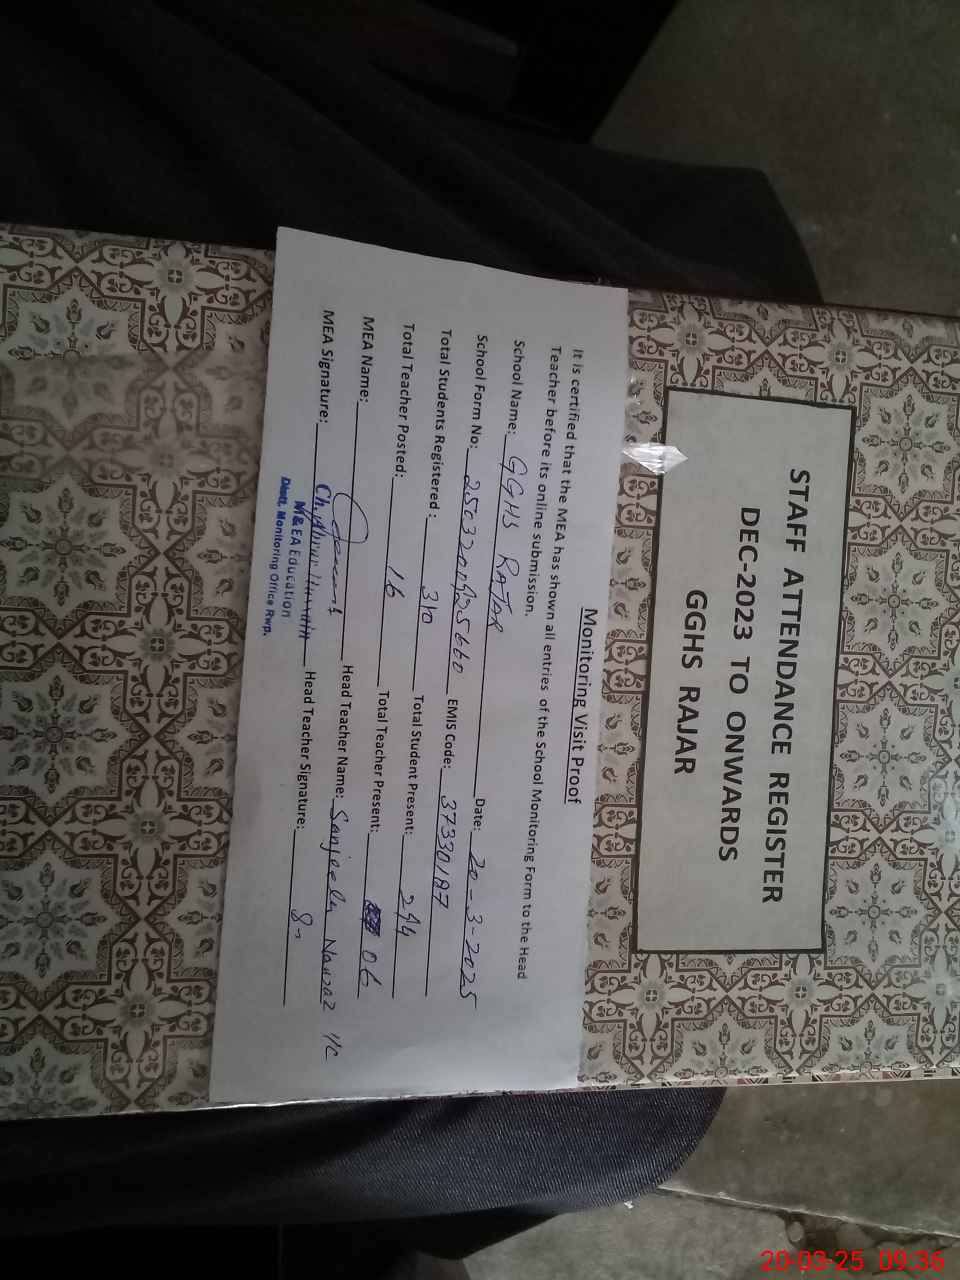 STAFF ATTENDANCE REGISTER
DEC-2023 TO ONWARDS
GGHS RAJAR
Monitoring Visit Proof
It is certified that the MEA has shown all entries of the School Monitoring Form to the Head
Teacher before its online submission.
School Name: GGHS RAJAR Date: 20-3-2025
School Form No: EMIS Code: 37330187
Total Students Registered: 310 Total Student Present: 244
Total Teacher Posted: 16 Total Teacher Present: 06
MEA Name: Head Teacher Name: Nawaz I/C
MEA Signature: Head Teacher Signature:
M&EA Education
Distt. Monitoring Office Rwp.
20-03-25 09:36